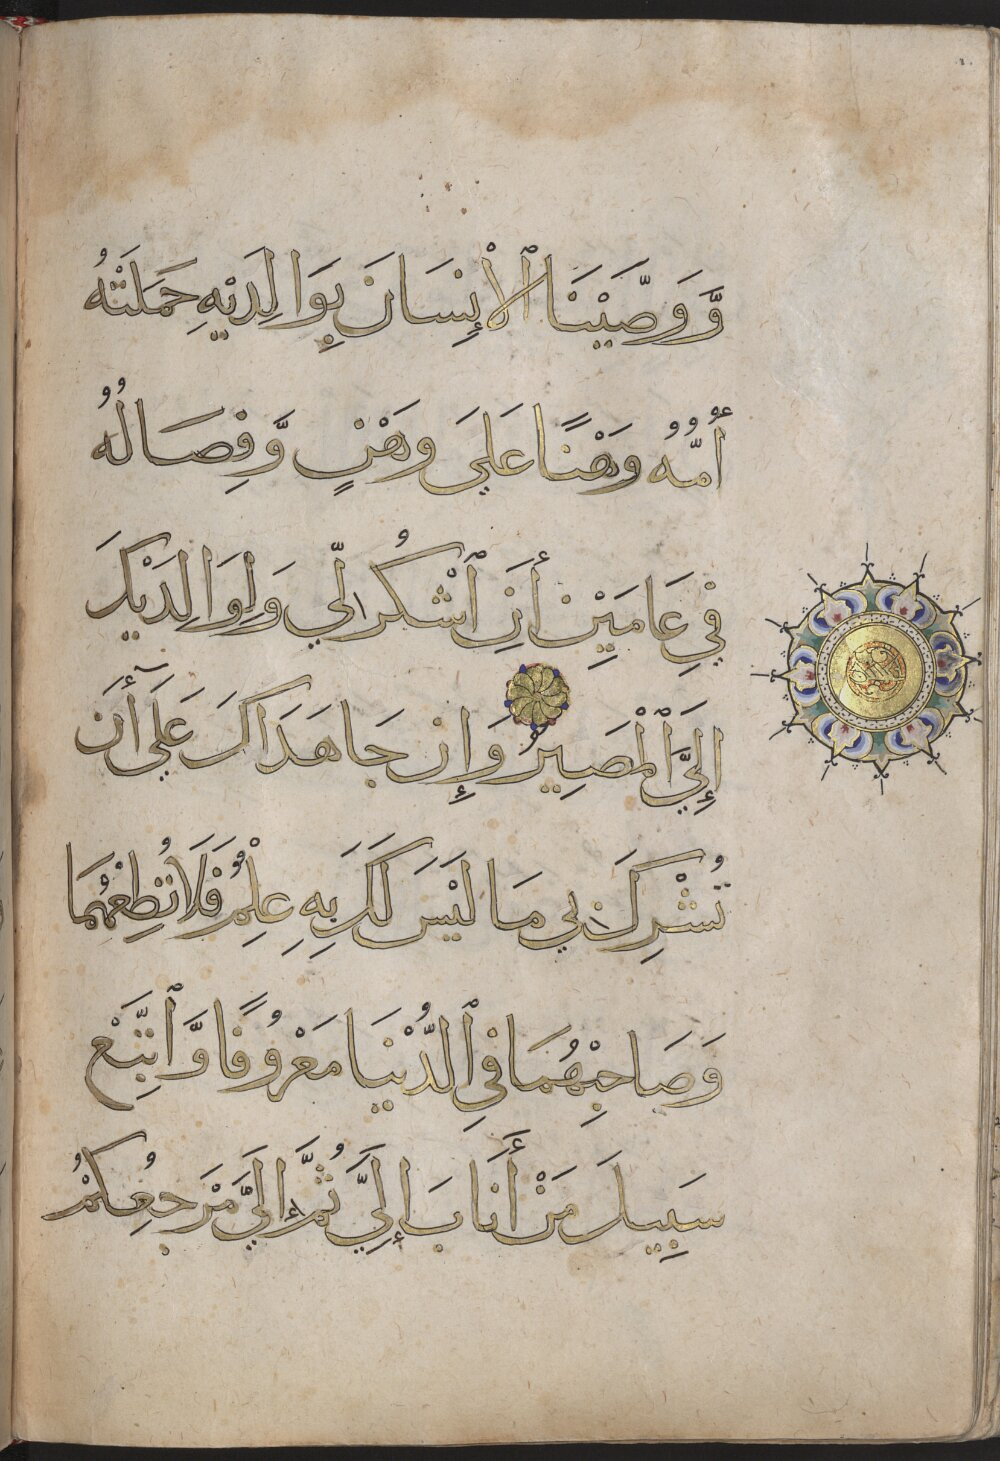 وَّوَصَّيْنَا ٱلْإِنسَانَ بِوَالِدَيْهِ حَمَلَتْهُ
أُمُّهُ وَهْنًا عَلَى وَهْنٍ وَّفِصَالُهُ
فِي عَامَيْنِ أَنِ ٱشْكُرْ لِّي وَلِوَالِدَيْكَ
إِلَيَّ ٱلْمَصِيرُ وَإِن جَاهَدَاكَ عَلَىٓ أَن
تُشْرِكَ بِي مَا لَيْسَ لَكَ بِهِ عِلْمٌ فَلَا تُطِعْهُمَا
وَصَاحِبْهُمَا فِي ٱلدُّنْيَا مَعْرُوفًا وَّٱتَّبِعْ
سَبِيلَ مَنْ أَنَابَ إِلَيَّ ثُمَّ إِلَيَّ مَرْجِعُكُمْ